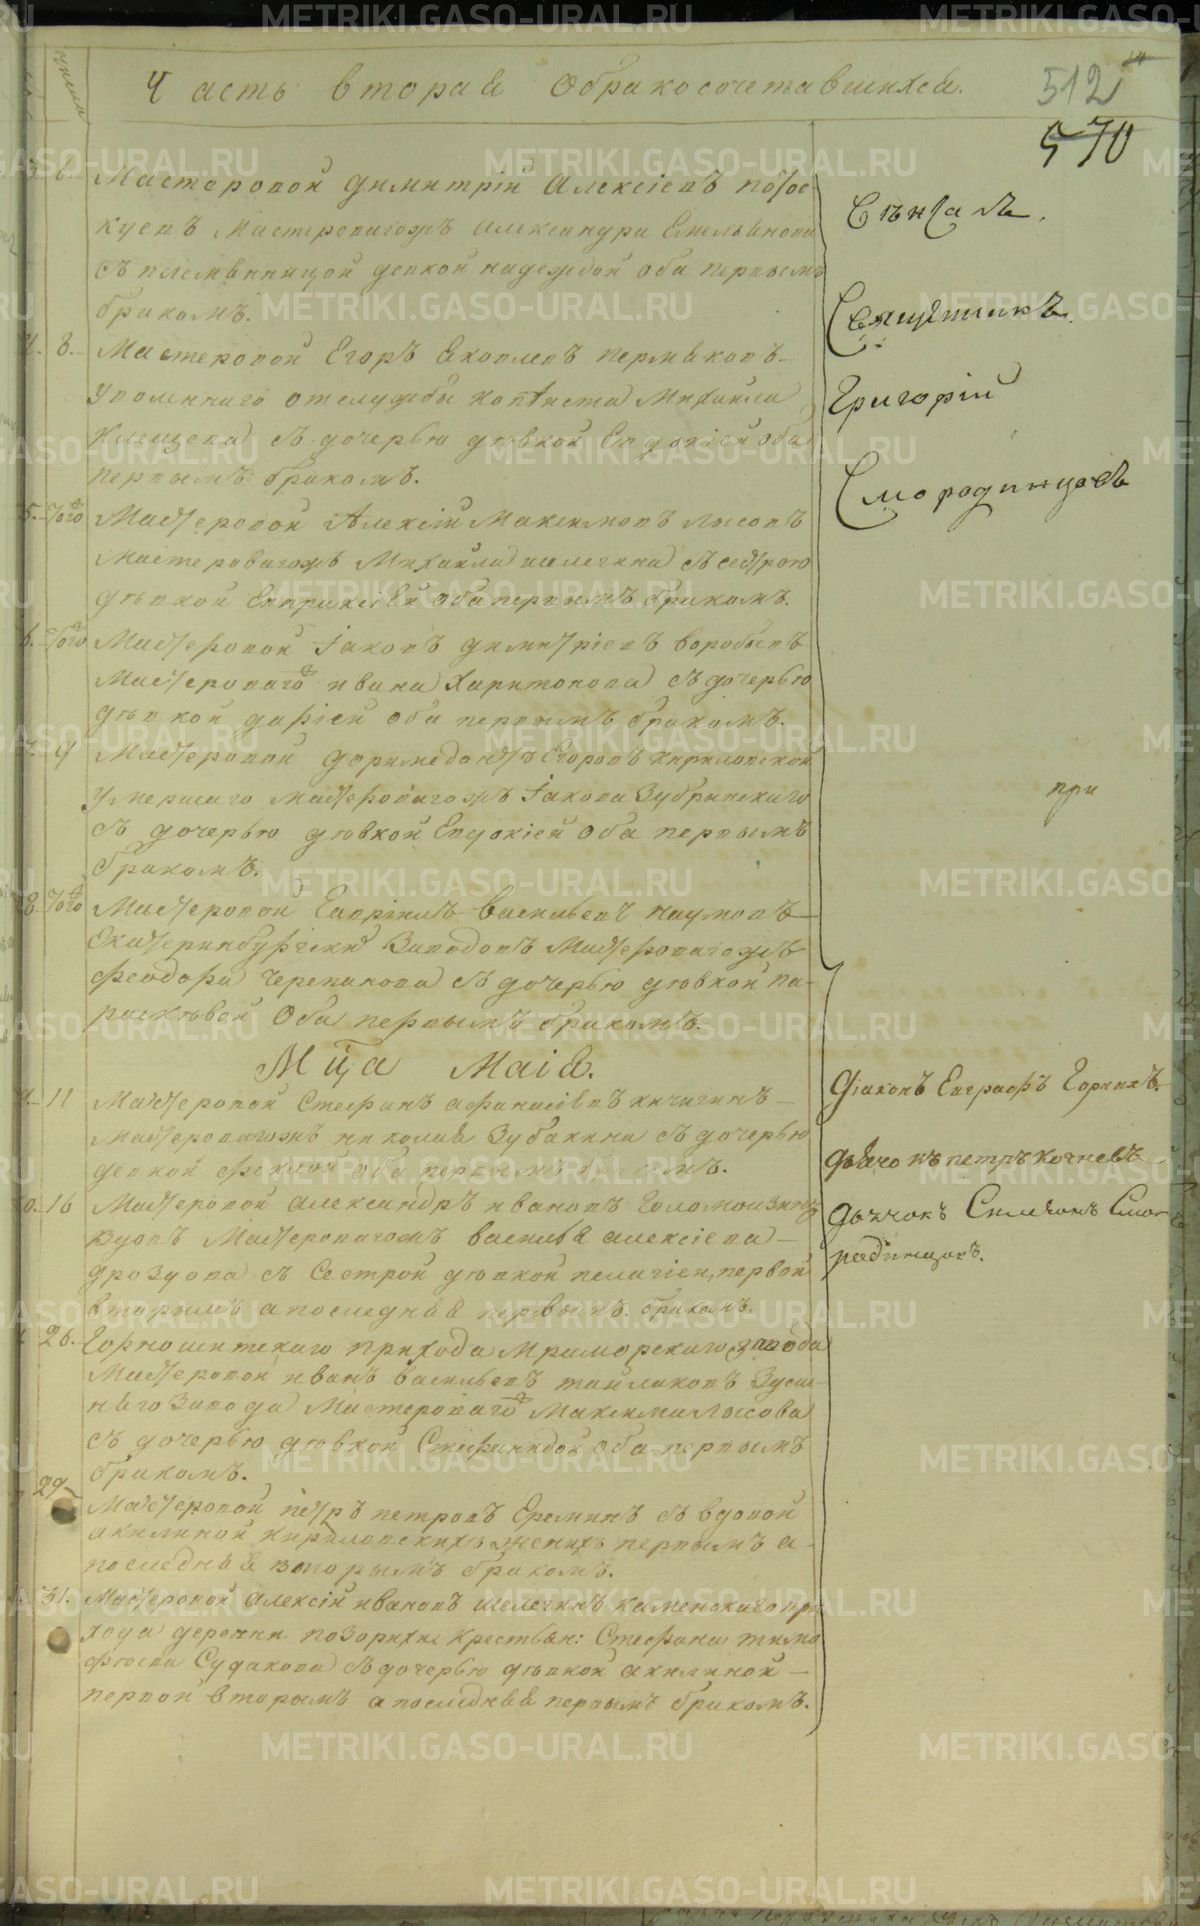 числа
Часть вторая о бракосочетавшихся.
512
570
3. 6. Мастеровой Димитрій Алексіевъ
Мастероваго Александра Емельянова
съ племянницой девкой Надеждой оба первымъ
бракомъ.
4. 8. Мастеровой Егоръ Яковлевъ Пермяковъ
Уволеннаго от службы Михаила
Клещева съ дочерью дѣвкой Евдокіей оба
первымъ бракомъ.
5. того Мастеровой Алексій Максимовъ Лосовъ
Мастероваго Михаила Шелегина съ сестрою
дѣвкой Евпраксіей оба первымъ бракомъ.
6. того Мастеровой Іаковъ Димитріевъ Воробьевъ
Мастероваго Ивана Харитонова съ дочерью
дѣвкой Даріей оба первымъ бракомъ.
7. 9 Мастеровой Доримедонтъ Егоровъ Кириловской
Умершаго Мастероваго Іакова Зубринскаго
съ дочерью дѣвкой Евдокіей оба первымъ
бракомъ.
8. того Мастеровой Гавріилъ Васильевъ Наумовъ
Мастероваго
Феодора Черепанова съ дочерью дѣвкой Па-
раскѣвой оба первымъ бракомъ.
Мца Маія.
9. 11 Мастеровой Стефанъ Афанасіевъ Кичигинъ
Мастероваго Николая Зубакина съ дочерью
девкой Феклой оба первымъ бракомъ.
10. 16 Мастеровой Александръ Ивановъ
Мастероваго Василья Алексіева
Дроздова съ сестрой дѣвкой Пелагіей, первой
вторымъ а последняя первымъ бракомъ.
26. Горношитскаго прихода Мраморскаго завода
Мастеровой Иванъ Васильевъ Здеш-
няго Завода Мастероваго Максима Лосова
съ дочерью дѣвкой Стефанидой оба первымъ
бракомъ.
29 Мастеровой Петръ Петровъ Ереминъ съ вдовой
Акилиной женихъ первымъ а
последняя вторымъ бракомъ.
31. Мастеровой Алексій Ивановъ Шелегинъ Каменскаго при
хода деревни Позарихи Крестьян: Стефана Тимо
фѣева Судакова съ дочерью дѣвкой Акилиной
первой вторымъ а последняя первымъ бракомъ.
Вѣнчалъ.
Священникъ
Григорій
Смородинцовъ
при
Діаконъ Евграфъ Горныхъ
Дьячокъ Петръ Кочневъ
Дьячокъ Симеонъ Смо-
родинцовъ.
METRIKI.GASO-URAL.RU